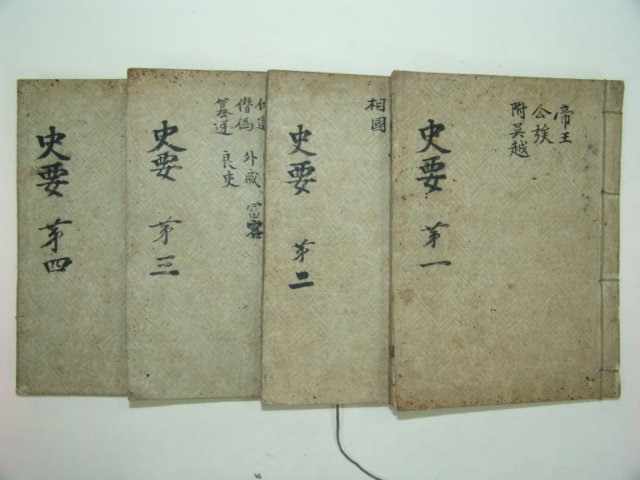 帝王
公族
附吳越
史要 第一
相國
史要 第二
僭僞 外戚 富客
篡逆 良吏
史要 第三
史要 第四